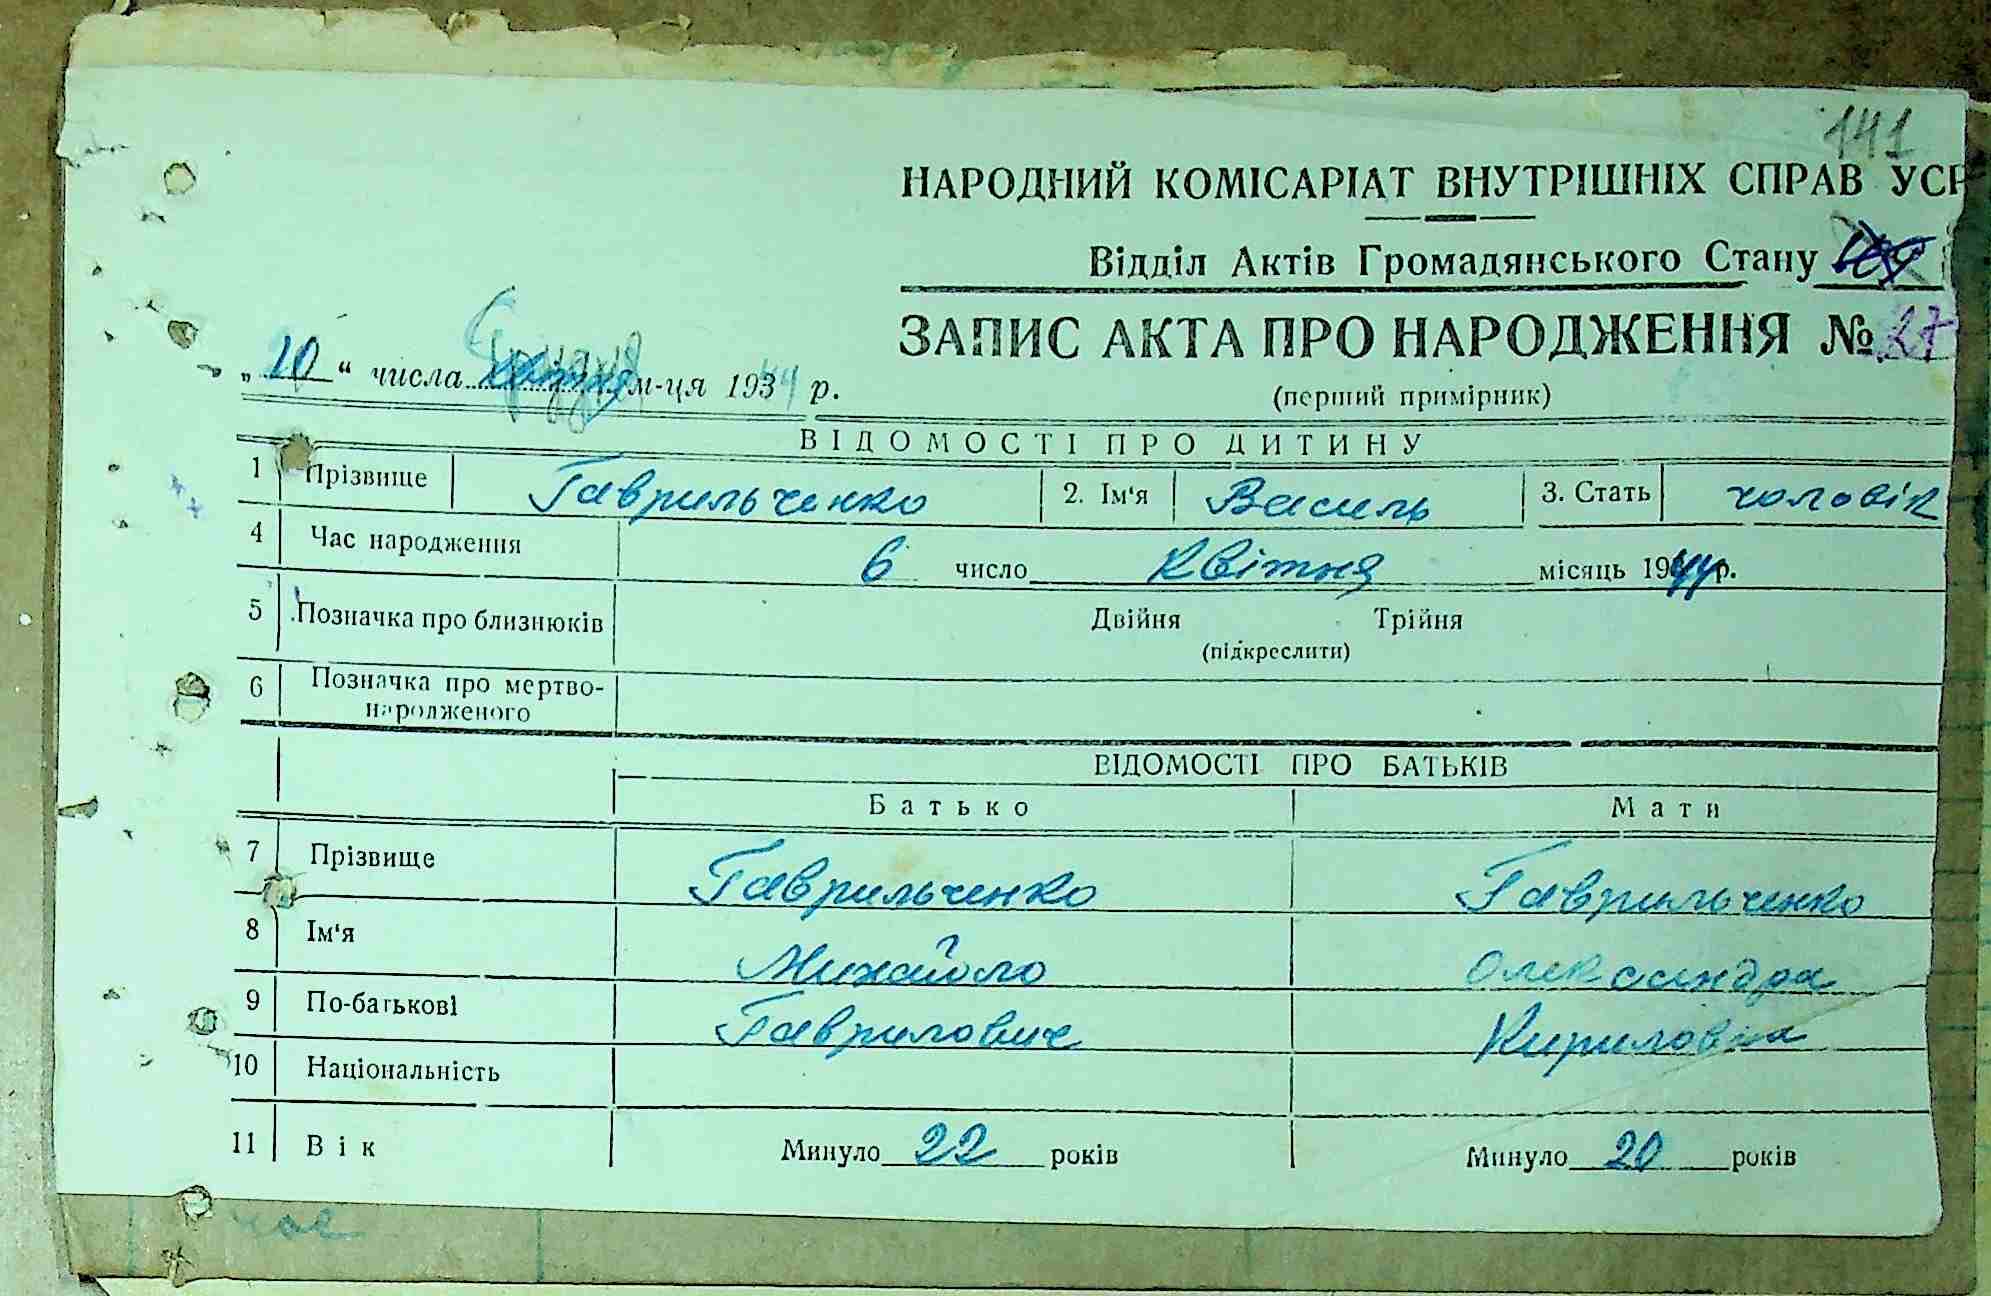 141
НАРОДНИЙ КОМІСАРІАТ ВНУТРІШНІХ СПРАВ УСР
Відділ Актів Громадянського Стану
ЗАПИС АКТА ПРО НАРОДЖЕННЯ № 27
„10“ числа Грудня м-ця 1944 р.
(перший примірник)
ВІДОМОСТІ ПРО ДИТИНУ
1 Прізвище Гаврильченко 2. Ім'я Василь 3. Стать чоловік
4 Час народження 6 число квітня місяць 1944 р.
5 Позначка про близнюків Двійня Трійня
(підкреслити)
6 Позначка про мертво-
народженого
ВІДОМОСТІ ПРО БАТЬКІВ
Батько Мати
7 Прізвище Гаврильченко Гаврильченко
8 Ім'я Михайло Олександра
9 По-батькові Гаврилович Кириловна
10 Національність
11 Вік Минуло 22 років Минуло 20 років